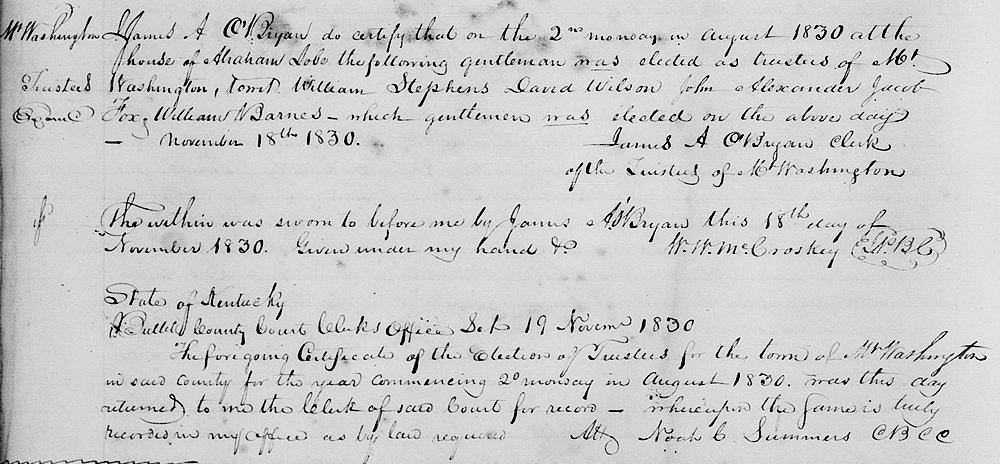 Mt Washington
Trustees
I James A O'Bryan do certify that on the 2nd monday in August 1830 at the
house of Abraham Lobb the following gentleman was elected as trustees of Mt
Washington, towit William Stephens David Wilson John Alexander Jacob
Fox, William Barnes – which gentlemen was elected on the above day
– November 18th 1830.
James A O'Bryan Clerk
of the Trustees of Mt Washington
The within was sworn to before me by James A O'Bryan this 18th day of
November 1830. Given under my hand &c
W. W. McCroskey
State of Kentucky
Bullitt County Court Clerks Office Sct 19 Novemr 1830
The foregoing Certificate of the Election of Trustees for the town of Mt Washington
in said county for the year commencing 2d monday in August 1830. was this day
returned to me the Clerk of said Court for record – whereupon the same is truly
recorded in my office as by law required Att Noah C. Summers C B C C